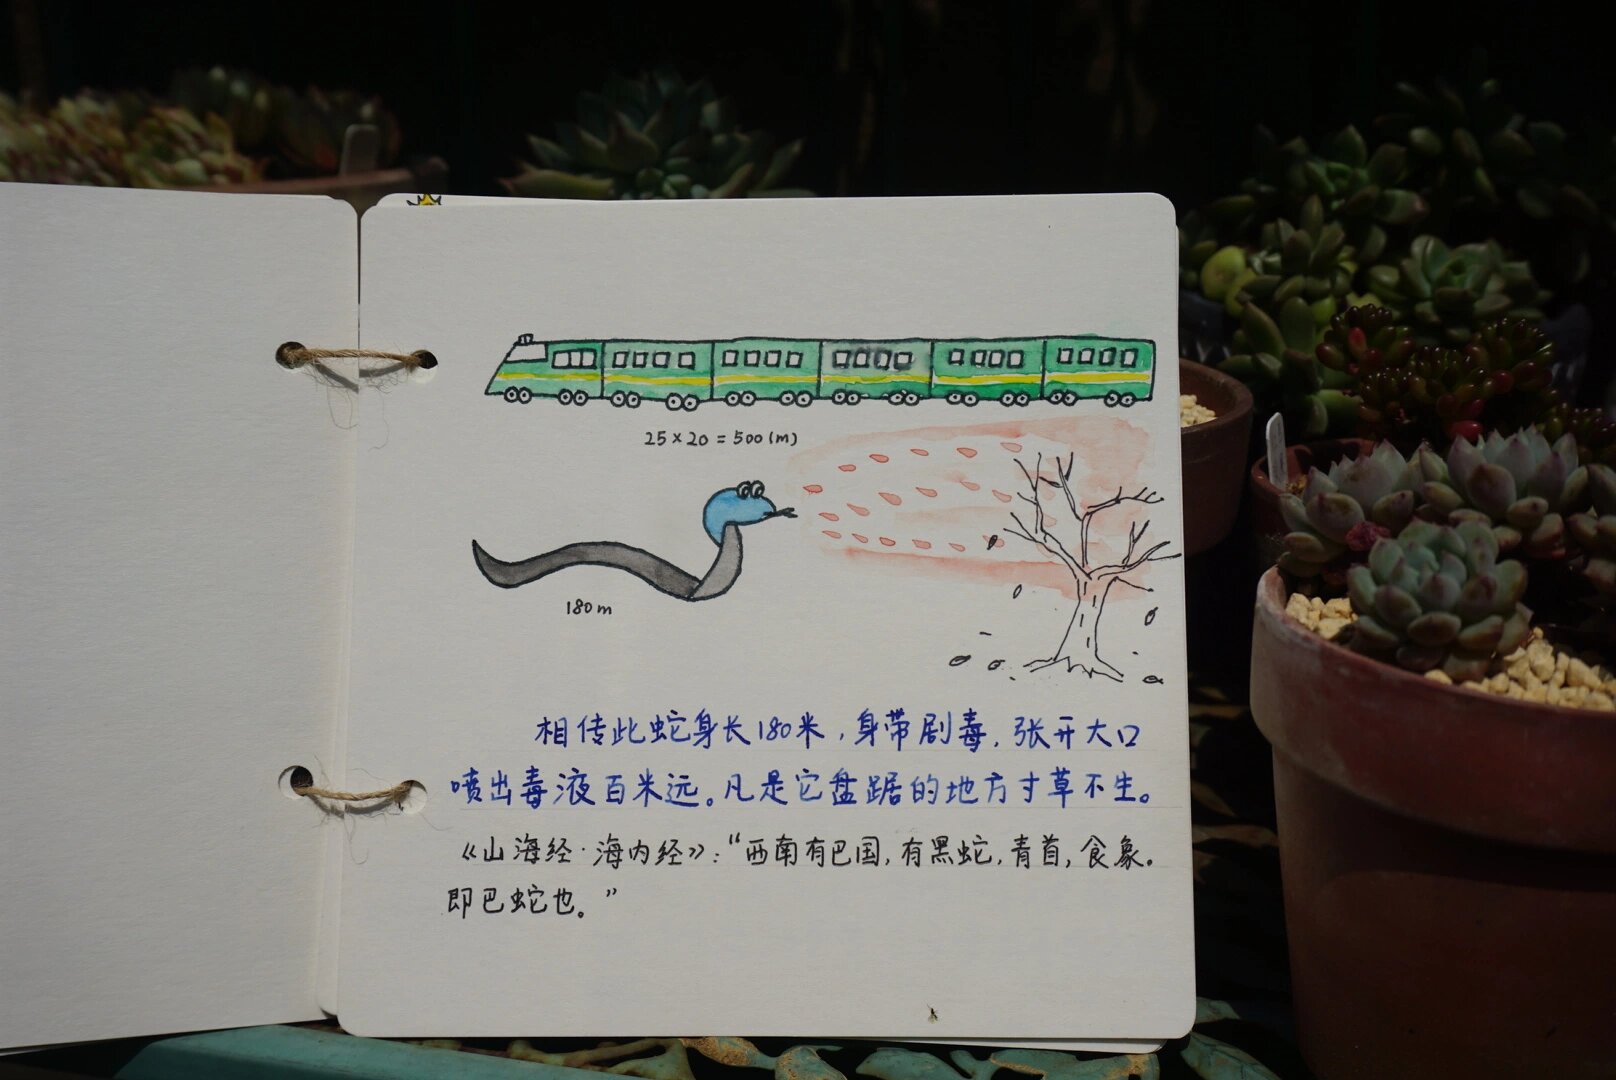 25×20=500(m)
180m
相传此蛇身长180米,身带剧毒,张开大口
喷出毒液百米远。凡是它盘踞的地方寸草不生。
《山海经·海内经》:“西南有巴国,有黑蛇,青首,食象。
即巴蛇也。”